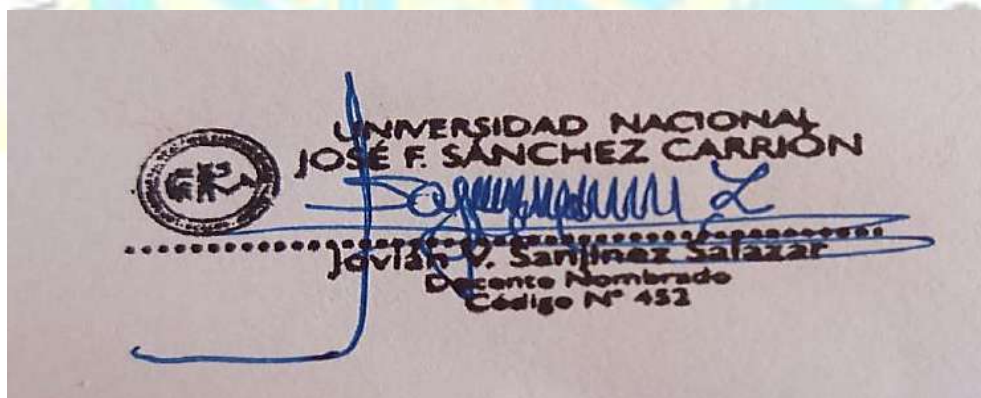 UNIVERSIDAD NACIONAL
JOSÉ F. SÁNCHEZ CARRIÓN
Jovián V. Sanjinez Salazar
Docente Nombrado
Código N° 452